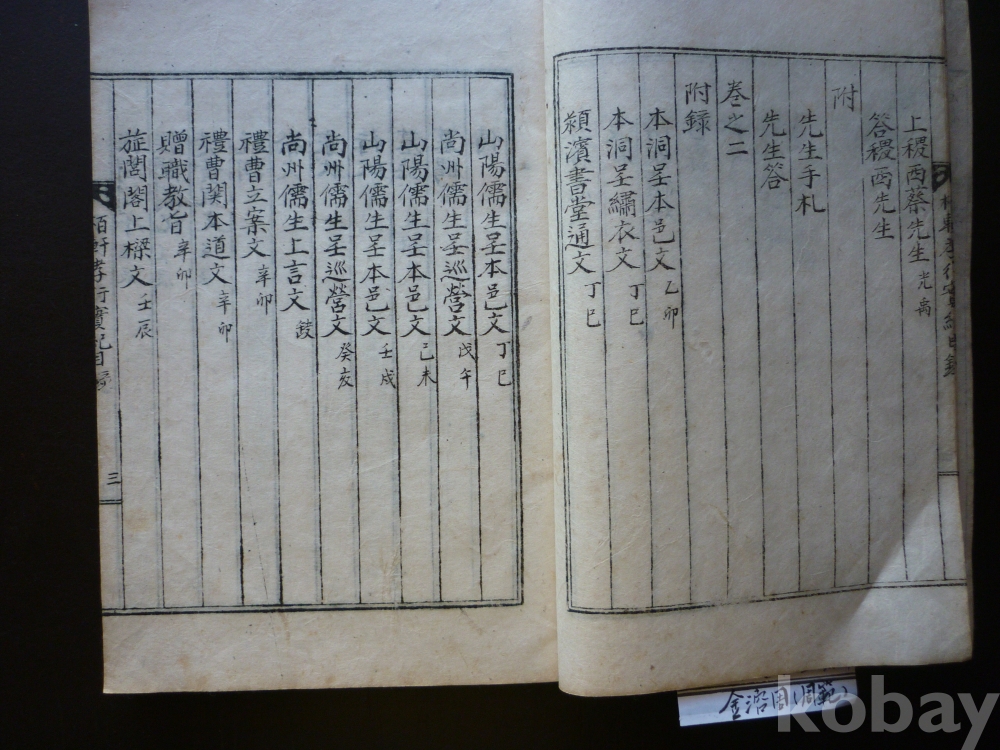 上稷西蔡先生 光禹
答稷西先生
附
先生手札
先生答
卷之二
附錄
本洞呈本邑文 乙卯
本洞呈繡衣文 丁巳
潁濱書堂通文 丁巳
山陽儒生呈本邑文 丁巳
尚州儒生呈巡營文 戊午
山陽儒生呈本邑文 己未
山陽儒生呈本邑文 壬戌
尚州儒生呈巡營文 癸亥
尚州儒生上言文
禮曹立案文 辛卯
禮曹関本道文 辛卯
贈職教旨 辛卯
旌閭閣上樑文 壬辰
孝行實記目錄
三
kobay